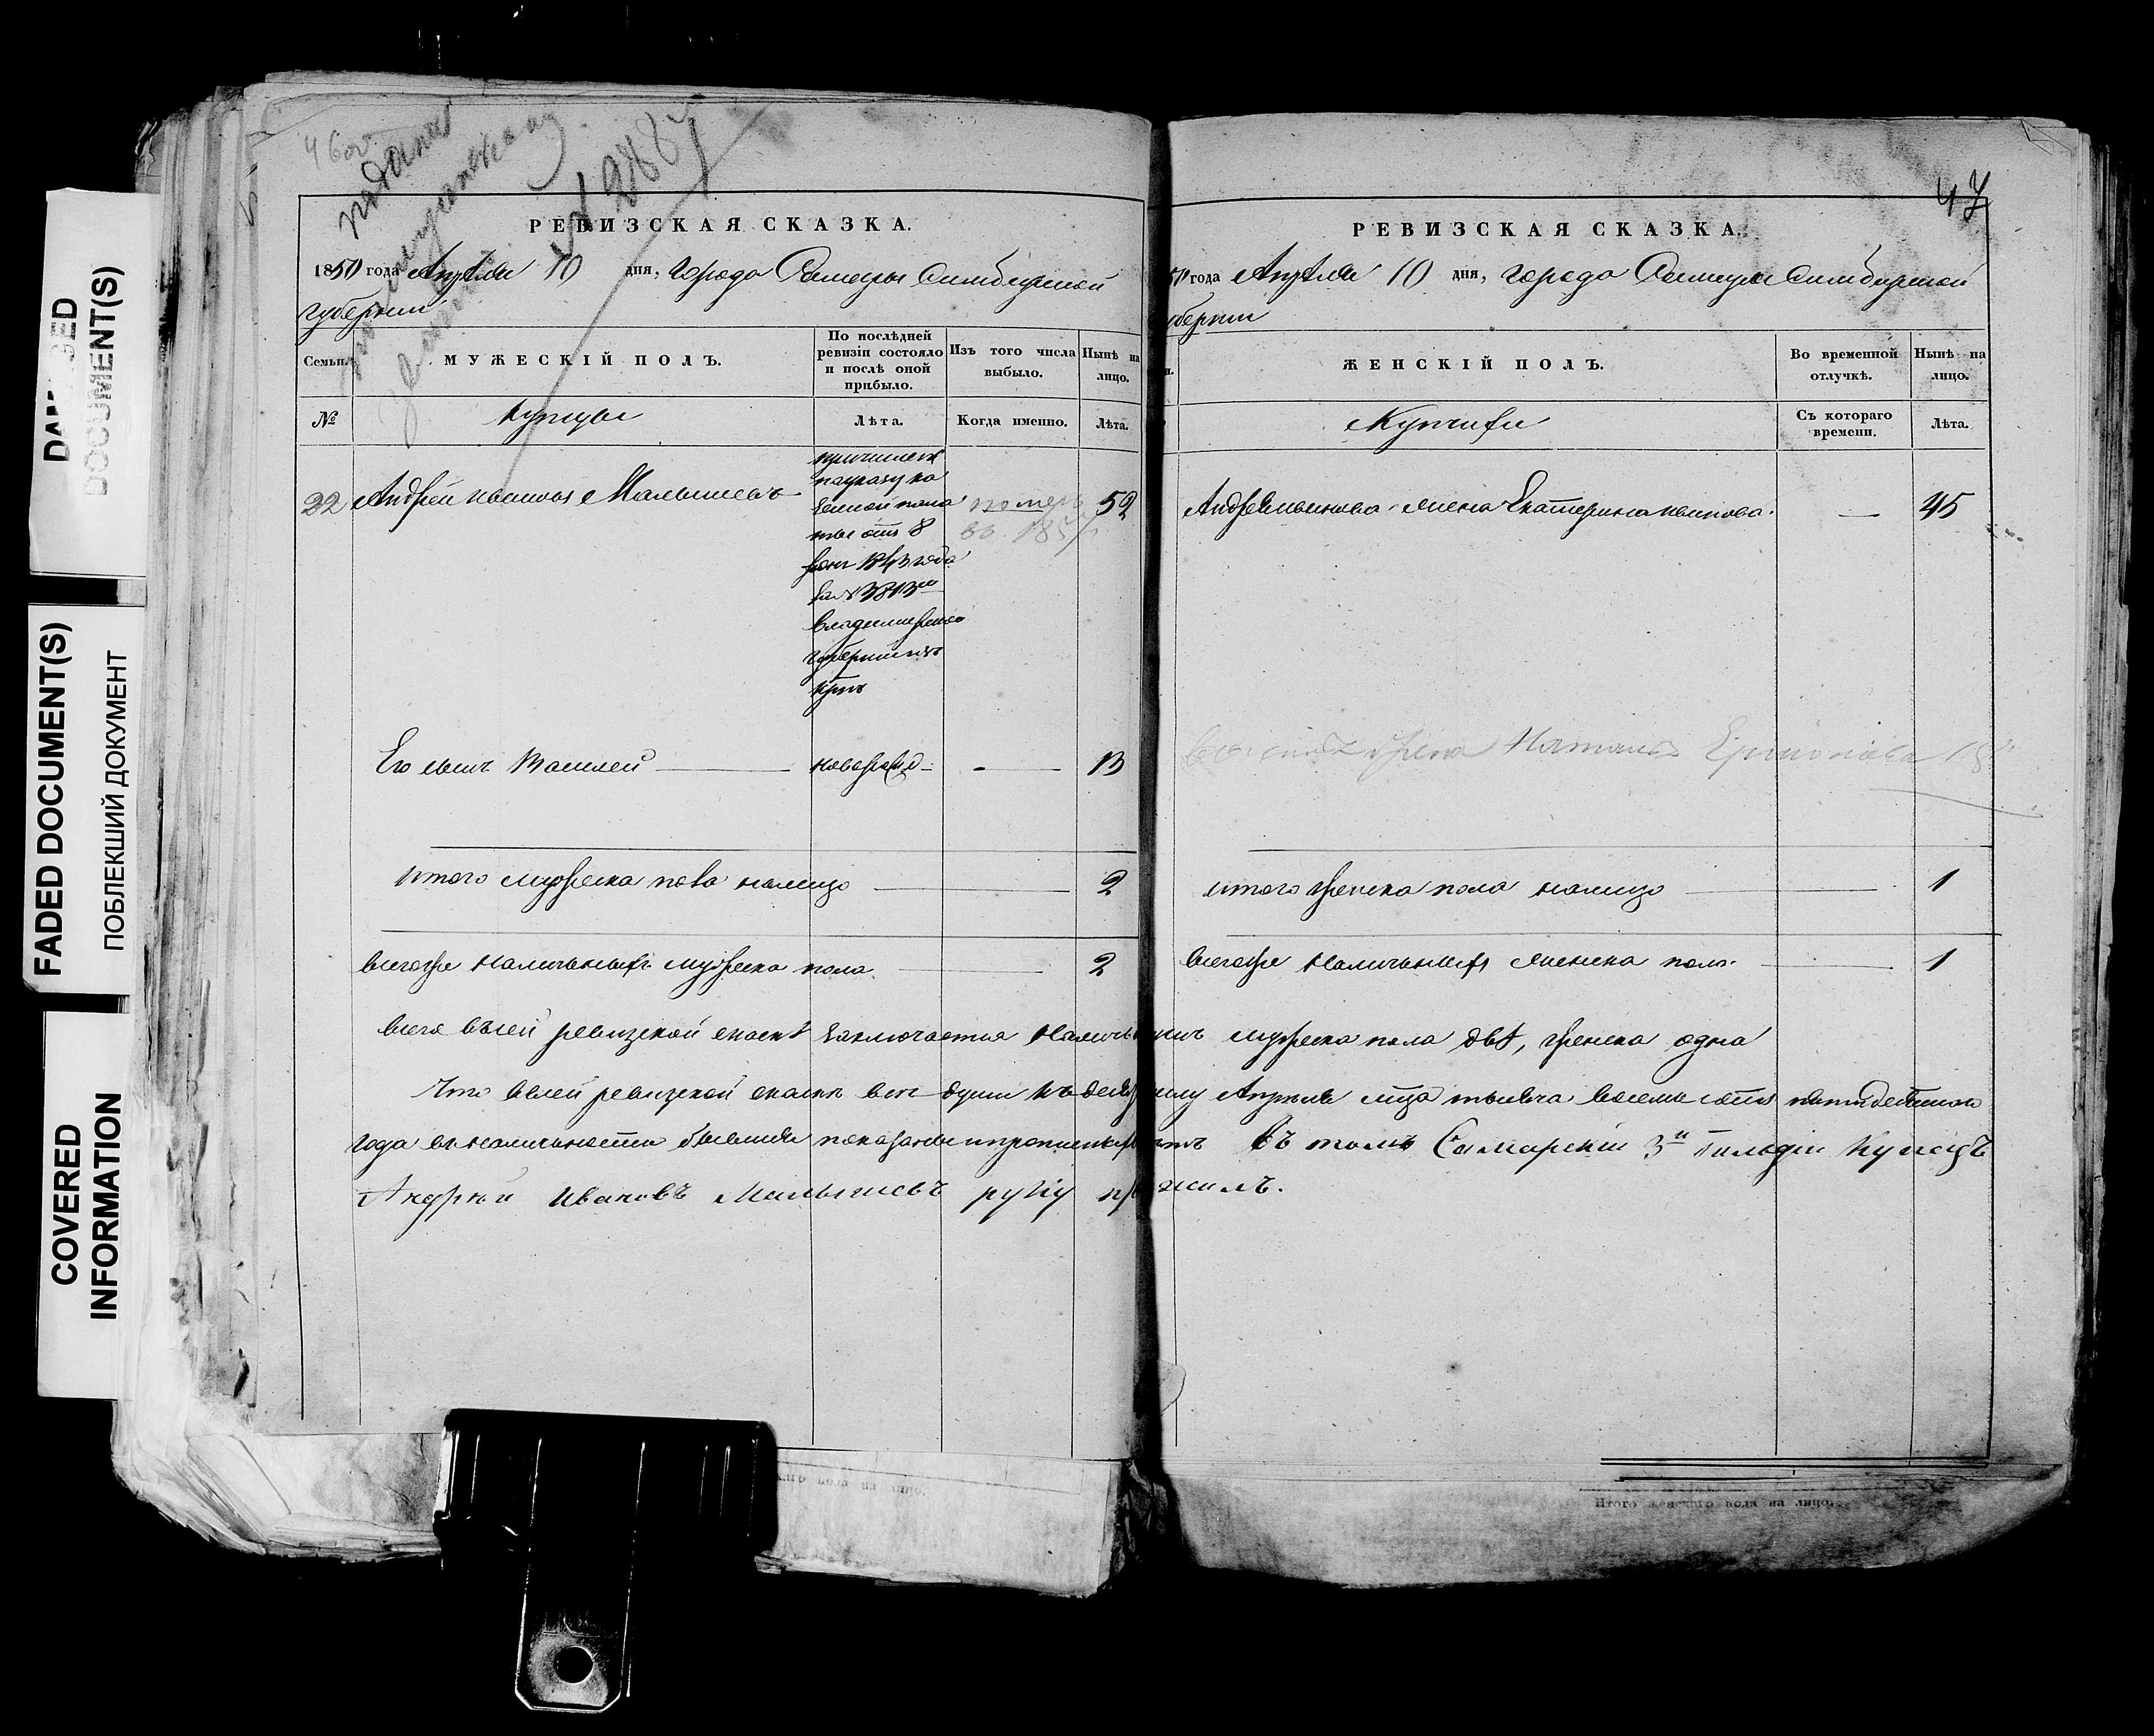 DOCUMENT(S)
FADED DOCUMENT(S)
ПОБЛЕКШИЙ ДОКУМЕНТ
COVERED
INFORMATION
46об.
подана
№ 1288
РЕВИЗСКАЯ СКАЗКА.
1850 года Апреля 10 дня, города Самары Симбирской
губернии
Семьи.
МУЖЕСКІЙ ПОЛЪ.
По послѣдней ревизіи состояло и послѣ оной прибыло.
Изъ того числа выбыло.
Нынѣ на лицо.
№
Купцы
Лѣта.
Когда именно.
Лѣта.
22 Андрей Иванов Малышевъ
причислен
по указу ка
зенной пала
ты отъ 8
1843 года
за № 3813
Владимирской
губернии изъ
помер
въ 185
52
Его сынъ Василей
новорожд
13
итого мужеска пола налицо 2
всегоже наличныхъ мужеска пола 2
47
РЕВИЗСКАЯ СКАЗКА.
50 года Апреля 10 дня, города Самары Симбирской
губернии
ЖЕНСКІЙ ПОЛЪ.
Во временной отлучкѣ.
Нынѣ на лицо.
Купчихи
Съ котораго времени.
Лѣта.
Андрея Иванова жена Екатерина Иванова. — 45
жена Наталья Ермолаева
итого женска пола налицо 1
всегоже наличныхъ женска пола 1
всего въ сей ревизской сказкѣ заключается наличными мужеска пола двѣ, женска одна
Что в сей ревизской сказке все души къ десятому числу Апреля мца тысяча восемь сотъ пятидесятого
года въ наличности бывшия показаны и прописныхъ нетъ Въ томъ Самарскій 3й Гильдіи Купецъ
Андрей Ивановъ Малышевъ руку приложилъ.
каго пола на лицо.
Итого женскаго пола на лицо.